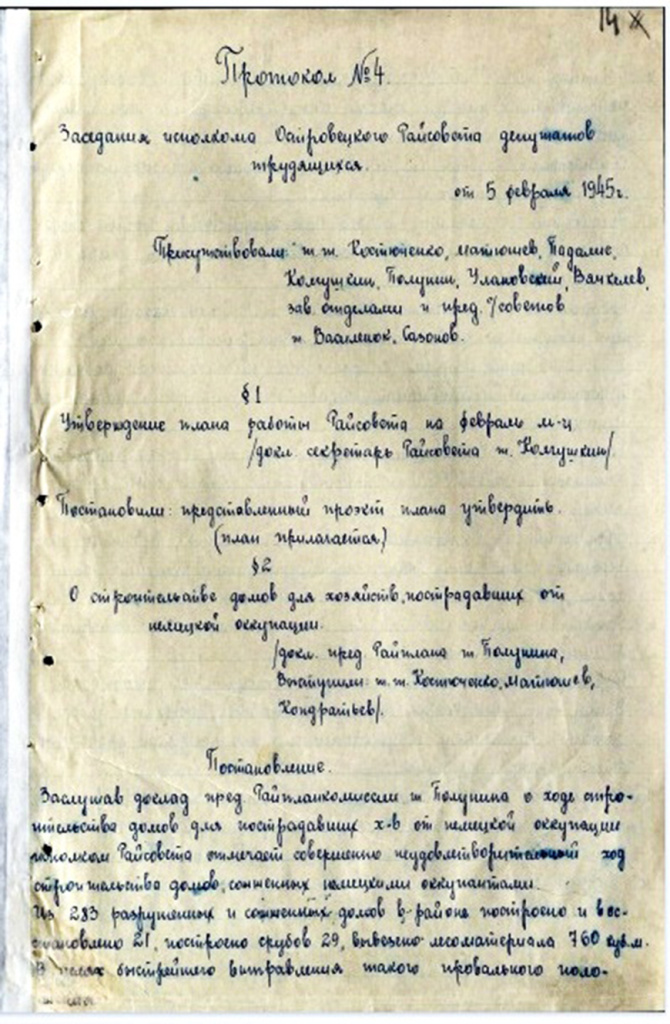 14
Протокол №4
Заседания исполкома Островецкого Райсовета депутатов
трудящихся
от 5 февраля 1945г.
Присутствовали: т.т. Костюченко, Матюшев, Падалис,
Комушкин, Полунин, Улановский, Вячкелев,
зав. отделами и пред. с/советов
т. Василенок, Сазонов.
§1
Утверждение плана работы Райсовета на февраль м-ц
/докл. секретарь Райсовета т. Комушкин/
Постановили: представленный проэкт плана утвердить
(план прилагается)
§2
О строительстве домов для хозяйств, пострадавших от
немецкой оккупации.
/докл. пред. Райплана т. Полунина,
Выступили: т.т. Костюченко, Матюшев,
Кондратьев/.
Постановление.
Заслушав доклад пред. Райпланкомиссии т. Полунина о ходе строи-
тельства домов для пострадавших х-в от немецкой оккупации
исполком Райсовета отмечает совершенно неудовлетворительный ход
строительства домов, сожженных немецкими оккупантами.
Из 283 разрушенных и сожженных домов в районе построено и вос-
становлено 21, построено срубов 29, вывезено лесоматериала 760 куб.м.
В целях быстрейшего выправления такого провального поло-